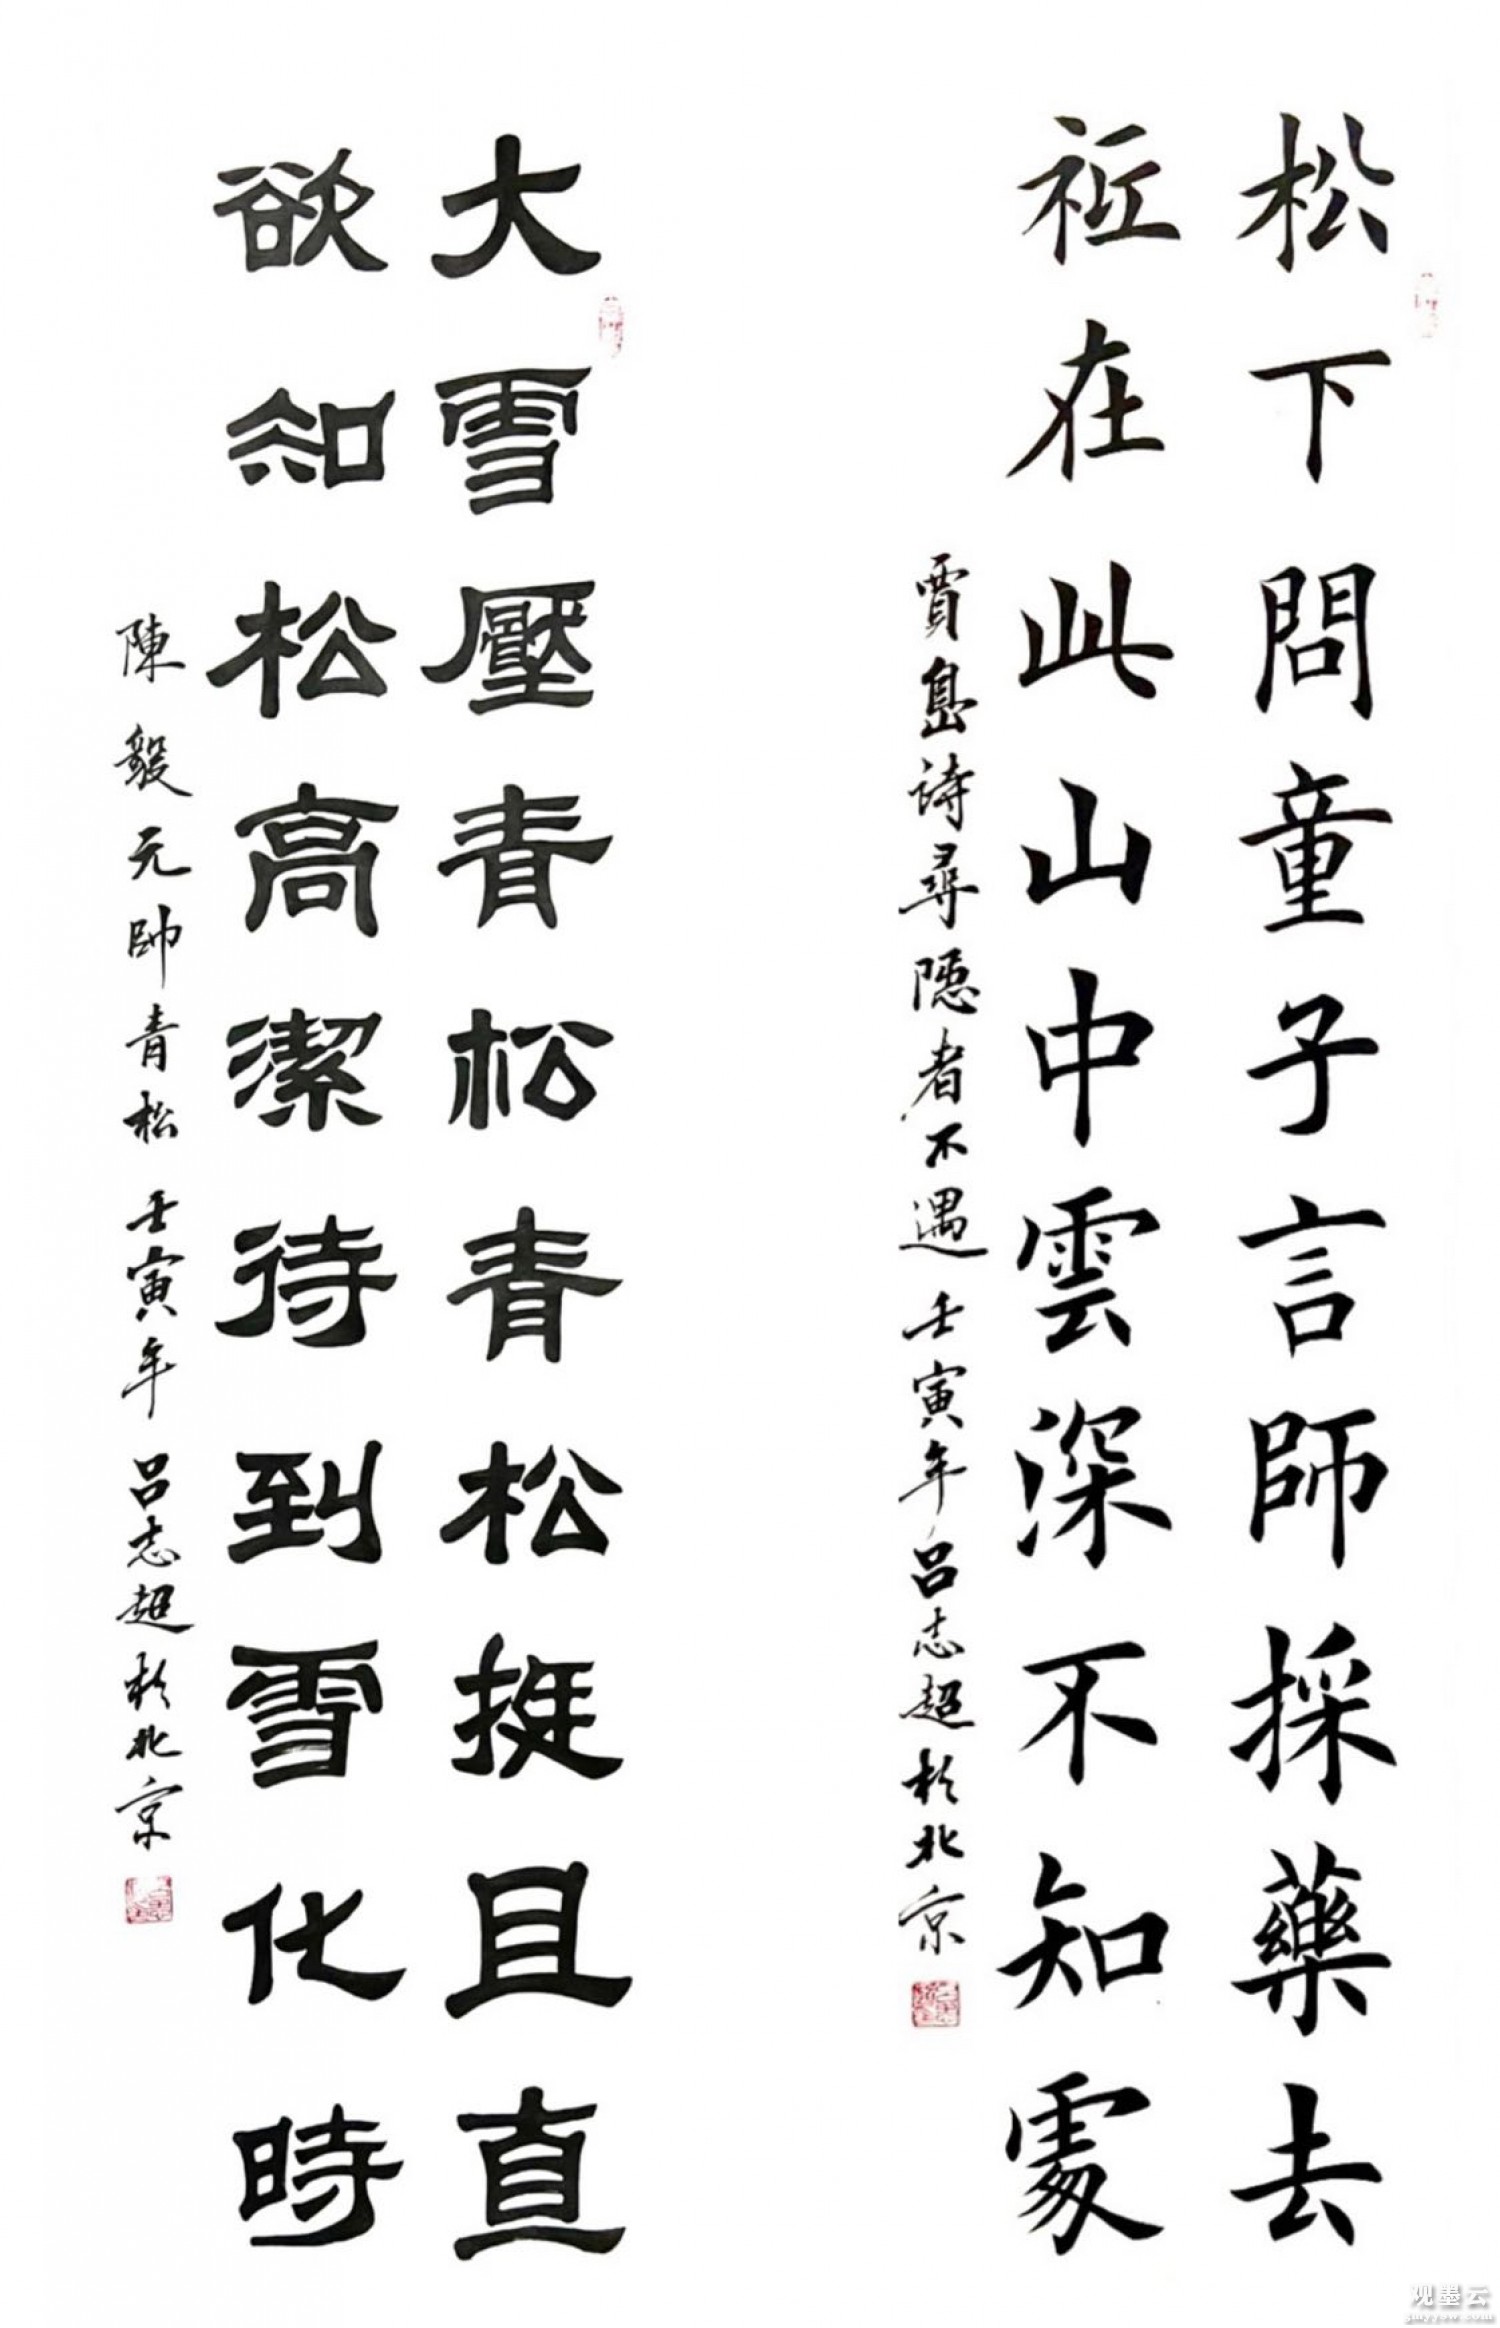 松下問童子言師採藥去
祗在此山中雲深不知處
賈島詩尋隱者不遇 壬寅年呂志超於北京
大雪壓青松青松挺且直
欲知松高潔待到雪化時
陳毅元帥青松 壬寅年 呂志超於北京
观墨云